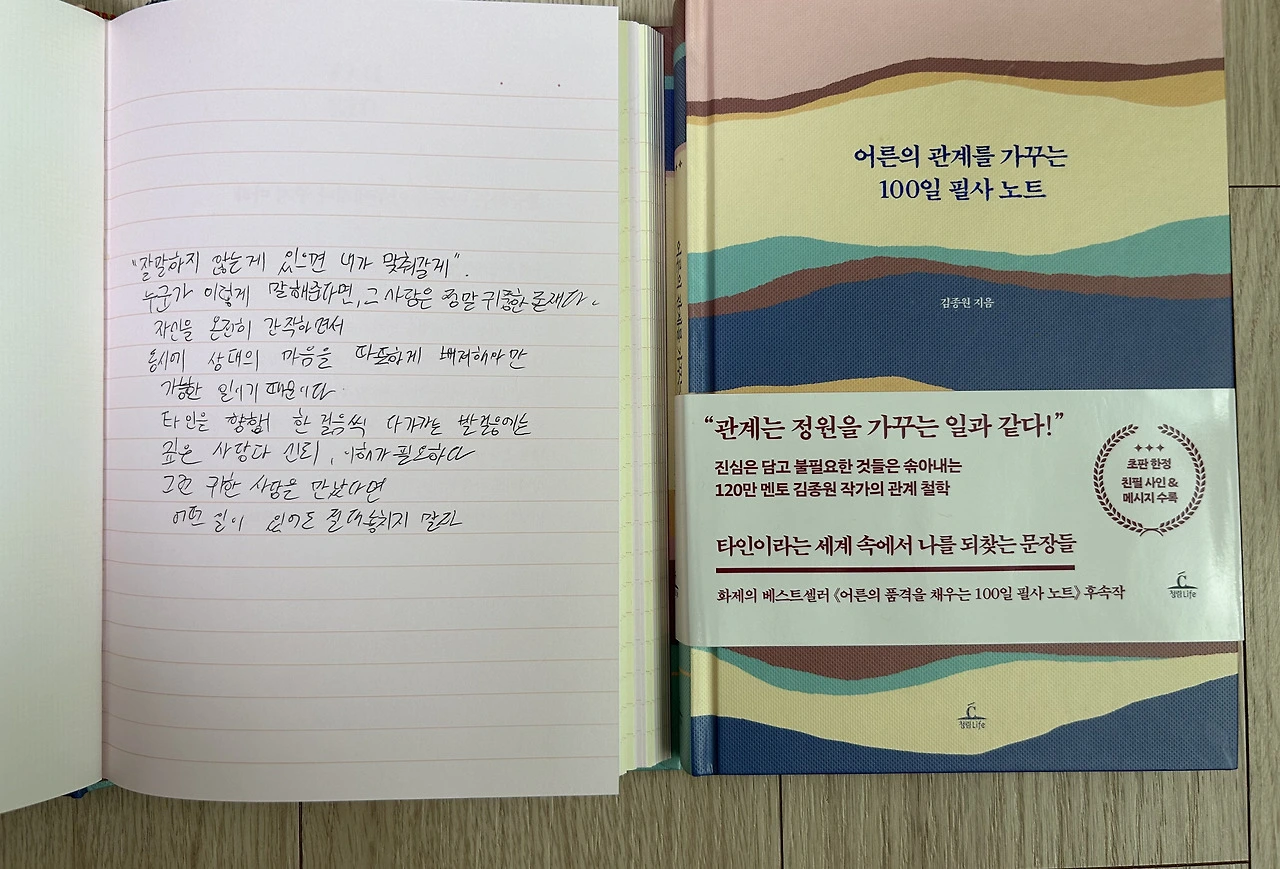 "잘말하지 않는게 있으면 내가 맞춰갈게".
누군가 이렇게 말해준다면, 그 사람은 정말 귀중한 존재다.
자신을 온전히 간직하면서
동시에 상대의 마음을 따뜻하게 배려해야만
가능한 일이기 때문이다.
타인을 향해 한 걸음씩 다가가는 발걸음에는
깊은 사랑과 신뢰, 이해가 필요하다
그런 귀한 사람을 만났다면
어떤 일이 있어도 절대 놓치지 말라
어른의 관계를 가꾸는
100일 필사 노트
김종원 지음
어른의 관계를 가꾸
"관계는 정원을 가꾸는 일과 같다!"
진심은 담고 불필요한 것들은 솎아내는
120만 멘토 김종원 작가의 관계 철학
초판 한정
친필 사인 &
메시지 수록
타인이라는 세계 속에서 나를 되찾는 문장들
화제의 베스트셀러 《어른의 품격을 채우는 100일 필사 노트》 후속작
청림Life
청림Life